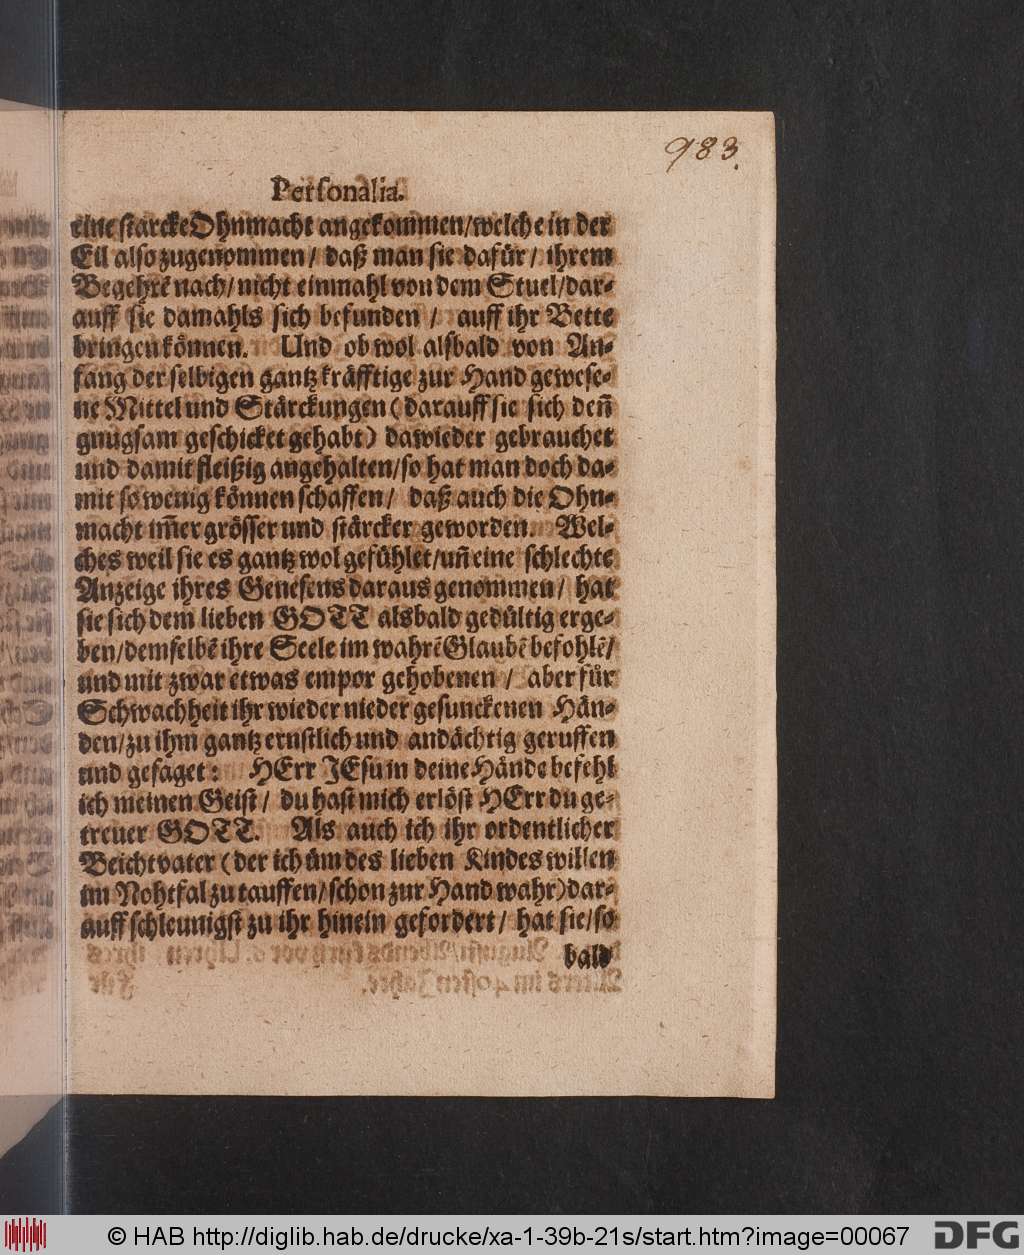 983.
Personalia.
eine starcke Ohnmacht angekommen/welche in der
Eil also zugenommen/ daß man sie dafür/ ihrem
Begehrẽ nach/ nicht einmahl von dem Stuel/dar-
auff sie damahls sich befunden/ auff ihr Bette
bringen können. Und ob wol alsbald von An-
fang derselbigen gantz kräfftige zur Hand gewese-
ne Mittel und Stärckungen (darauff sie sich deñ
gnugsam geschicket gehabt) dawieder gebrauchet
und damit fleißig angehalten/so hat man doch da-
mit so wenig können schaffen/ daß auch die Ohn-
macht im̃er grösser und stärcker geworden. Wel-
ches weil sie es gantz wol gefühlet/uñ eine schlechte
Anzeige ihres Genesens daraus genommen/ hat
sie sich dem lieben GOTT alsbald gedültig erge-
ben/demselbẽ ihre Seele im wahrẽ Glaubẽ befohlẽ/
und mit zwar etwas empor gehobenen/ aber für
Schwachheit ihr wieder nieder gesunckenen Hän-
den/zu ihm gantz ernstlich und andächtig geruffen
und gesaget: HErr JEsu in deine Hände befehl
ich meinen Geist/ du hast mich erlöst HErr du ge-
treuer GOTT. Als auch ich ihr ordentlicher
Beichtvater (der ich üm des lieben Kindes willen
im Nohtfal zu tauffen/schon zur Hand wahr) dar-
auff schleunigst zu ihr hinein gefordert/ hat sie/so
bald
© HAB http://diglib.hab.de/drucke/xa-1-39b-21s/start.htm?image=00067
DFG